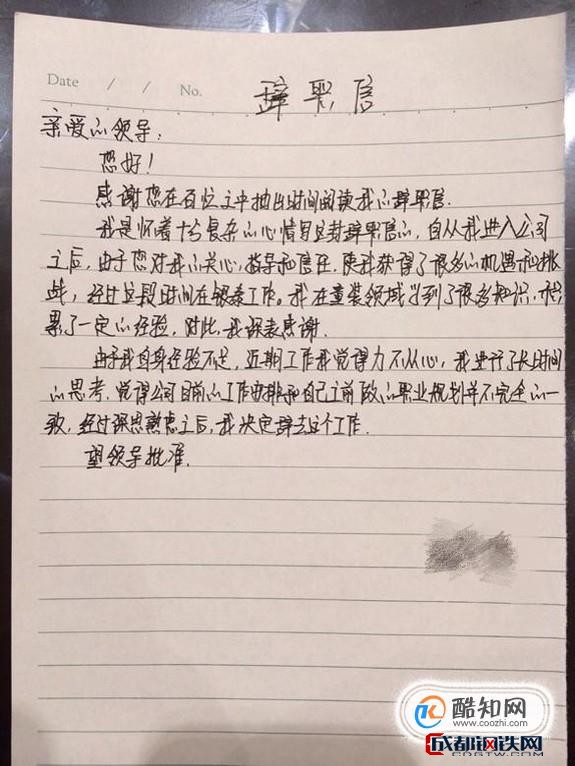 Date / / No.
辞职信
亲爱的领导：
您好！
感谢您在百忙之中抽出时间阅读我的辞职信.
我是怀着十分复杂的心情写这封辞职信的，自从我进入公司
之后，由于您对我的关心，指导和信任，使我获得了很多的机遇和挑
战，经过这段时间在银泰工作。我在童装领域学到了很多知识，积
累了一定的经验，对此，我深表感谢.
由于我自身经验不足，近期工作我觉得力不从心，我进行了长时间
的思考，觉得公司目前的工作安排和自己之前做的职业规划并不完全的一
致，经过深思熟虑之后，我决定辞去这个工作.
望领导批准.
酷知网
www.coozhi.com
成都钢铁网